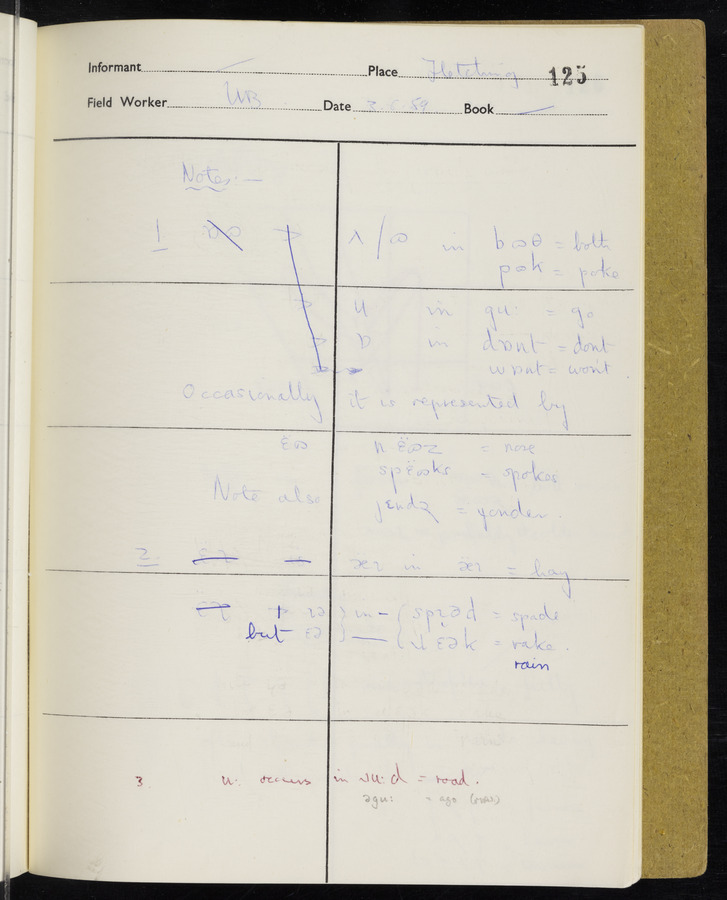 Informant Place Fletching 125
Field Worker Date Book
Notes:—
1 ʌ / ω in bωθ = both
pωk = poke
u in gu: = go
ɒ in dɒnt = dont
wɒnt = wont
Occasionally it is represented by
ɛ̈ω nɛ̈ωz = nose
spɛ̈ωks = spokes
Note also = yonder.
2. æɪ in æɪ = hay
ɪə } in – { spɪəd = spade
but ɛə } — { ɹɛək = rake.
rain
3. u: occurs in ɹu:d = road.
əgu: = ago